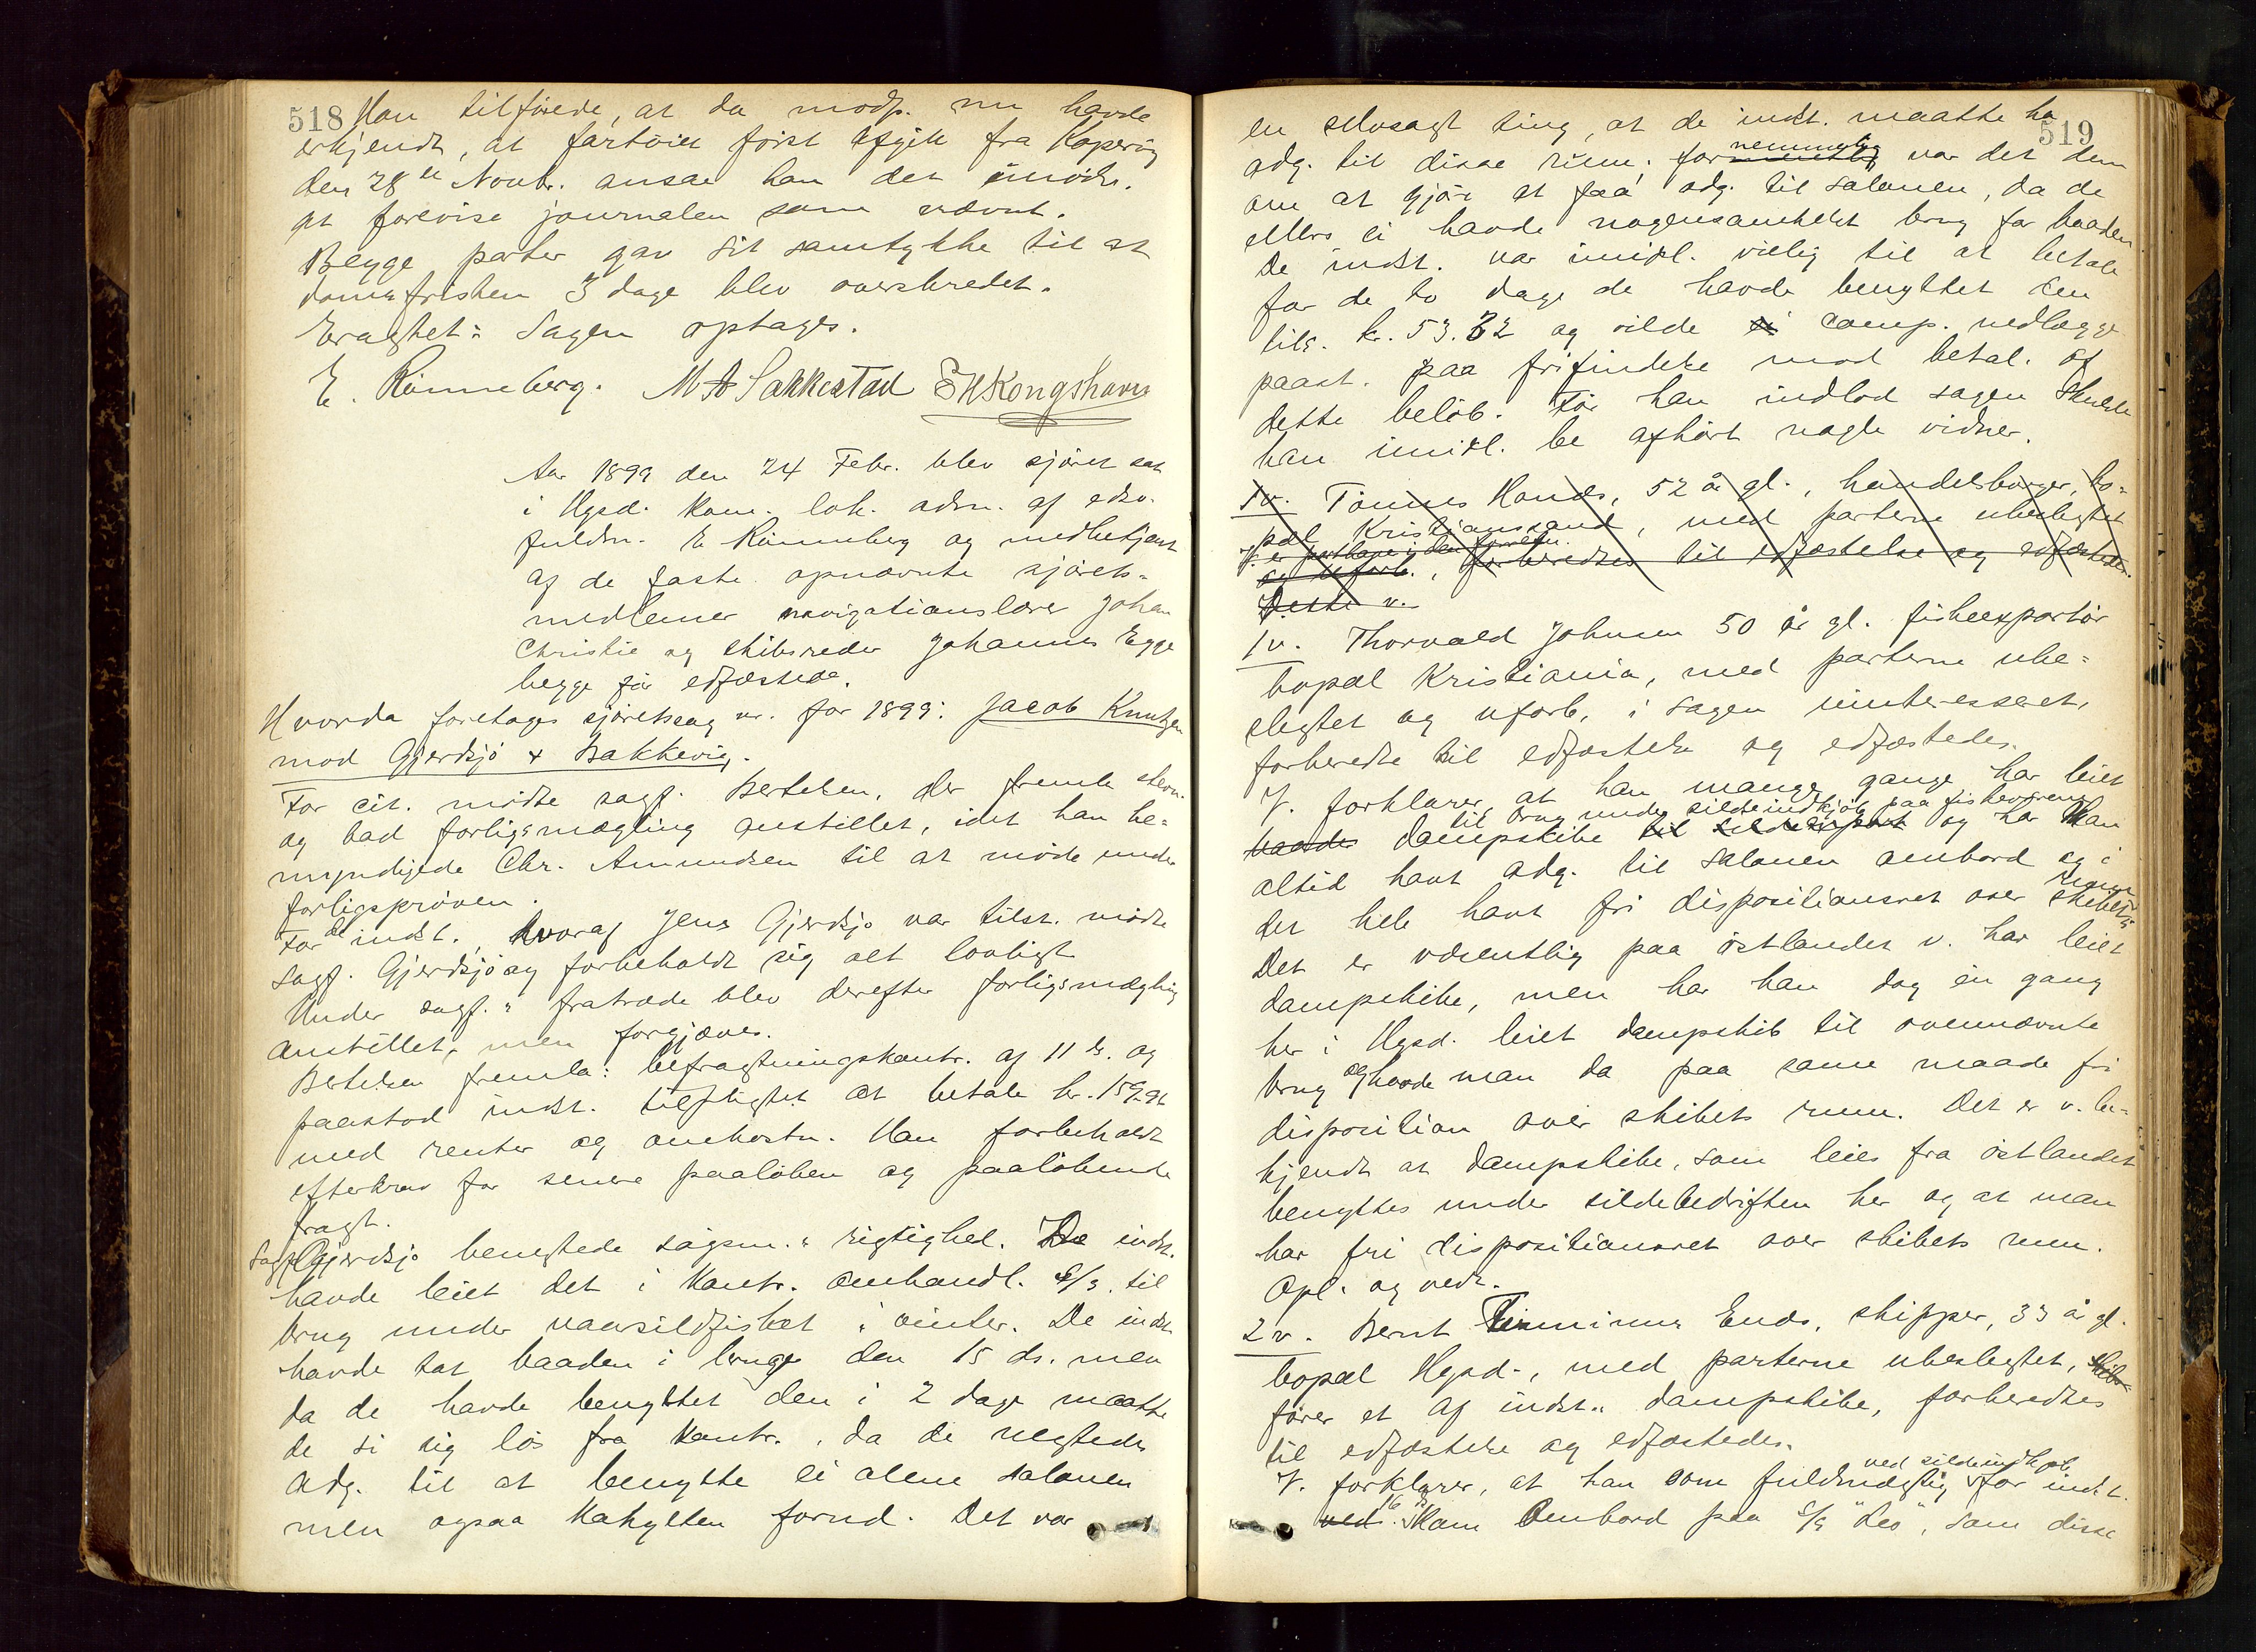 518
Han tilførede, at da modp. nu havde
erkjendt, at fartøiet først afgik fra Kopervig
den 28de Novbr. ansaa han det unødv.
at forevise journalen som nævnt.
Begge parter gav sit samtykke til at
domsfristen 3 dage blev overskredet.
Eragtet: Sagen optages.
E. Rønneberg. M A Sakkestad E H Kongshavn
Aar 1899 den 24 Febr. blev sjøret sat
i Hgsd. kom. lok. adm. af edsv.
fuldm. E Rønneberg og medbetjent
af de faste opnævnte sjørets-
medlemer navigationslærer Johan
Christie og skibsreder Johannes Egge
begge før edfæstede.
Hvorda foretages sjøretssag nr. for 1899: Jacob Knutzen
mod Gjerdsjø & Bakkevig.
For cit. mødte sagf. Bertelsen, der fremla stevn.
og bad forligsmægling anstillet, idet han be-
myndigede Chr. Amundsen til at møde under
forligsprøven.
For de indst., hvoraf Jens Gjerdsjø var tilst. mødte
sagf. Gjerdsjø og forbeholdt sig alt lovligt
Under sagf.s fratræde blev derefter forligsmægling
anstillet, men forgjæves.
Bertelsen fremla: befragtningskontr. af 11 ds. og
paastod indst. tilpligtet at betale kr. 159.96
med renter og omkostn. Han forbeholdt
efterkrav for senere paaløben og paaløbende
fragt.
Sagf. Gjerdsjø benegtede sagsm.s rigtighed. De indst.
havde leiet det i kontr. omhandl. d/s. til
brug under vaarsildfisket i vinter. De indst.
havde tat baaden i bruge den 15 ds. men
da de havde benyttet den i 2 dage maatte
de si sig løs fra kontr., da de negtedes
adg. til at benytte ei alene salonen
men ogsaa kahytten forud. Det var
519
en selvsagt ting, at de indst. maatte ha
adg. til disse rum; fornemmelig var det dem
om at gjøre at faa adg. til salonen, da de
ellers ei havde nogensomhelst brug for baaden
De indst. var imidl. villig til at betale
for de to dage de havde benyttet den
tils. kr. 53.32 og vilde ei comp. nedlægge
paast. paa frifindelse mod betal. af
dette beløb. Før han indlod sagen skulde
han imidl. be afhørt nogle vidner.
1v. Tønnes Hands, 52 år gl., handelsborger, bo-
pæl Kristianssand, med parterne ubeslegtet
og uforb., forberedtes til edfæstelse og edfæstedes.
Dette v.
1v. Thorvald Johnsen 50 år gl. fiskeexportør
bopæl Kristiania, med parterne ube-
slegtet og uforb, i sagen uinteresseret,
forberedte til edfæstelse og edfæstedes.
V. forklarer, at han mange gange har leiet
til brug under sildeindkjøb paa fiskeværene
baader dampskibe til sildexport og har han
altid havt adg. til salonen ombord og i
det hele havt fri dispositionsret over skibets rum
Det er væsentlig paa østlandet v. har leiet
dampskibe, men har han dog én gang
her i Hgsd. leiet dampskib til ovennævnte
brug og havde man da paa same maade fri
disposition over skibets rum. Det er v. be-
kjendt at dampskibe, som leies fra østlandet
benyttes under sildebedriften her og at man
har fri dispositionsret over skibets rum.
Opl. og vedt.
2v. Bernt Ends, skipper, 33 år gl.
bopæl Hgsd., med parterne ubeslegtet,
fører et af indst.s dampskibe, forberedtes
til edfæstelse og edfæstedes.
ved sildeindkjøb
V. forklarer, at han som fuldmægtig for indst.
ved 16 ds. kom ombord paa d/s "Leo", som disse